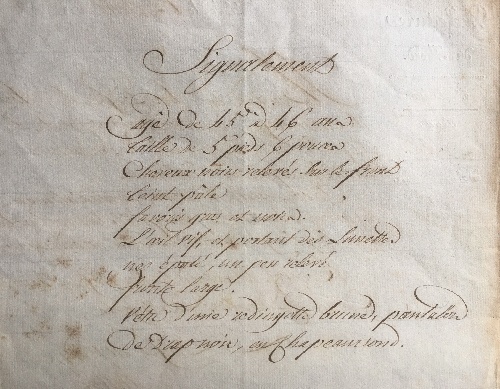 Signalement
agé de 45 à 46 ans
taille de 5 pieds 6 pouces
Cheveux noirs relevés sur le front
teint pâle
favoris gris et noirs.
L'œil vif, et portant des Lunettes
nez épaté, un peu relevé
large.
Vêtu d'une redingotte brune, pantalon
de Drap noir, en Chapeau rond.